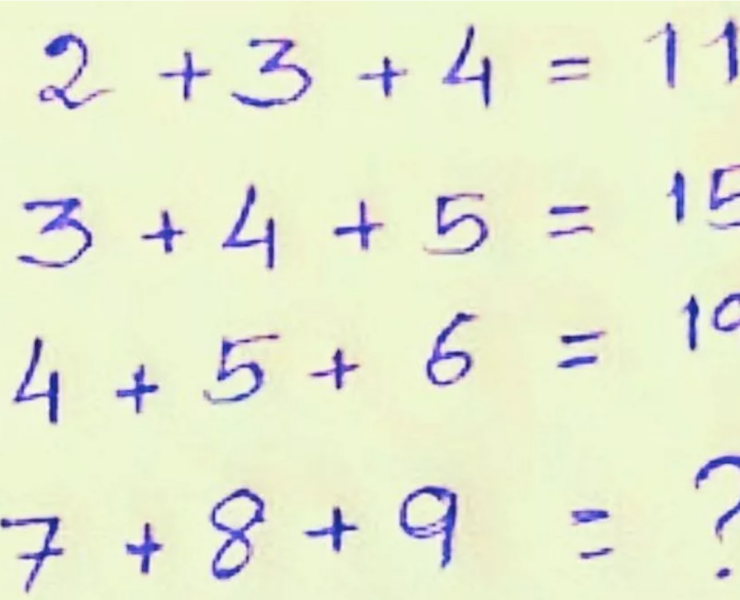 2 + 3 + 4 = 11
3 + 4 + 5 = 15
4 + 5 + 6 =
7 + 8 + 9 = ?